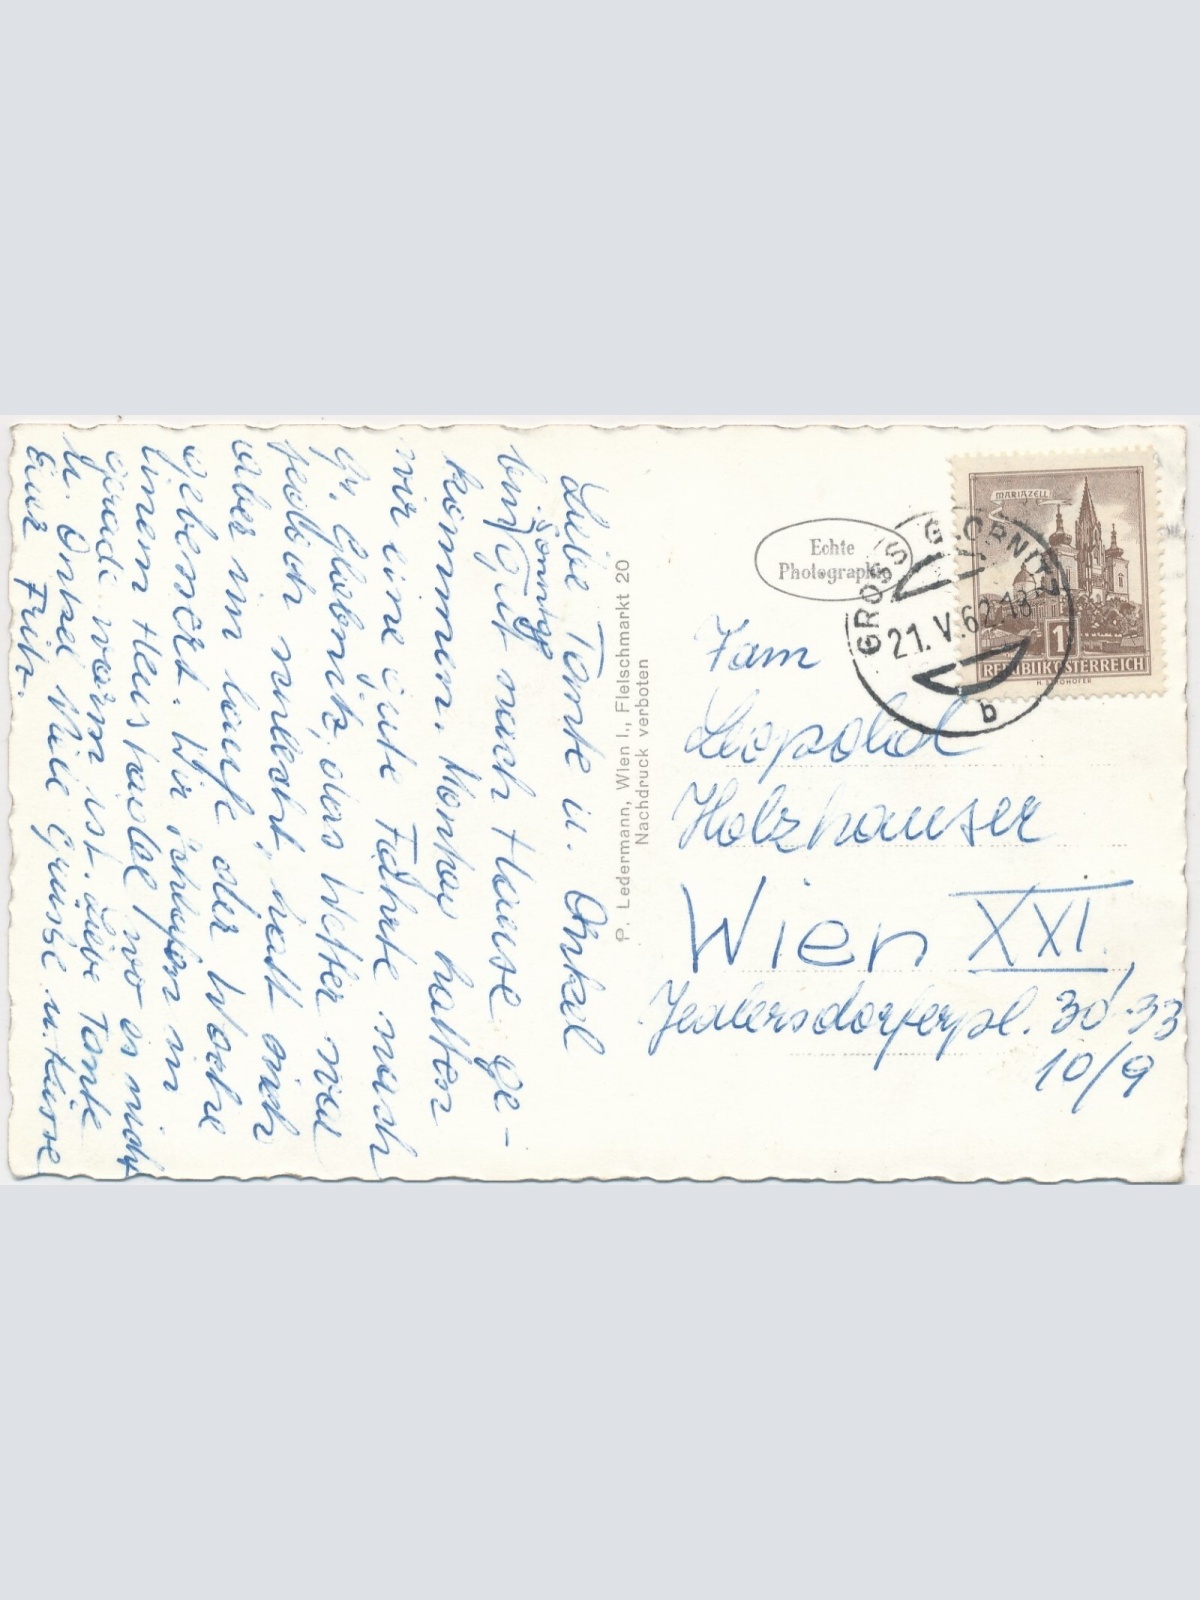 Liebe Tante u. Onkel
bin Sonntags Gut nach Hause ge-
kommen. Montag hatten
wir eine gute Fahrt nach
Gr. Globnitz, das Wetter war
jedoch schlecht, hatt sich
aber im laufe der Woche
gebessert. Wir schlafen in
einem Haus
gerade warm ist. Liebe Tante
u. Onkel Viele Grüsse u. Küsse
Euer Fritz.
P. Ledermann, Wien I., Fleischmarkt 20
Nachdruck verboten
Echte
Photographie
MARIAZELL
1
REPUBLIK ÖSTERREICH
GROSS GLOBNITZ
21.V.62.18
b
Fam
Leopold
Holzhauser
Wien XXI.,
Jedlersdorferpl. 30-33
10/9